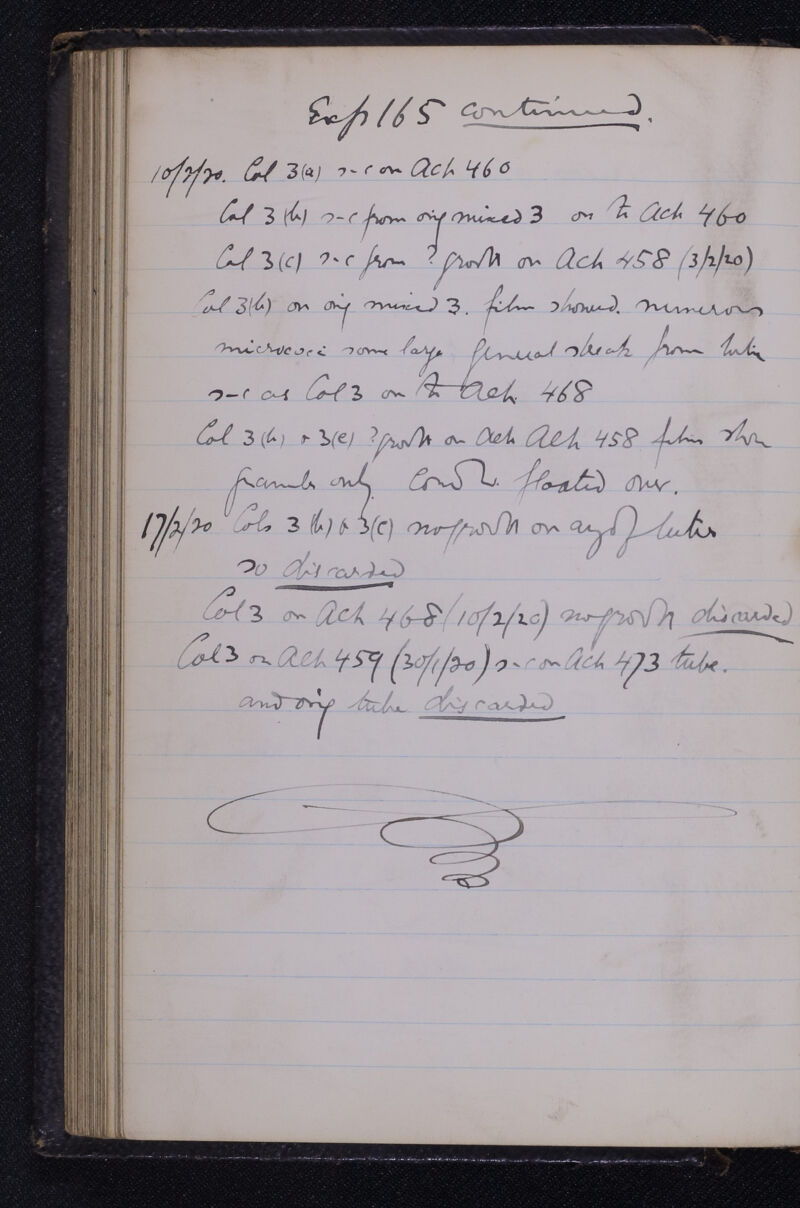 Exp 165 continued.
10/2/20. Col 3(a) s-c on Ach 460
Col 3(b) s-c from orig mixed 3 on Ach 460
Col 3(c) s-c from ? growth on Ach 458 (3/2/20)
Col 3(b) on orig mixed 3. film showed numerous
micrococci some large general streak from tube
s-c as Col 3 on Ach. 468
Col 3(b) + 3(c) ? growth on Ach 458 films show
granules only. floated over.
17/2/20 Cols 3(b) & 3(c) no growth on any of tubes
so discarded
Col 3 on Ach 468 (10/2/20) no growth discarded
Col 3 on Ach 459 (30/1/20) s-c on Ach 473 tube.
and orig tube discarded